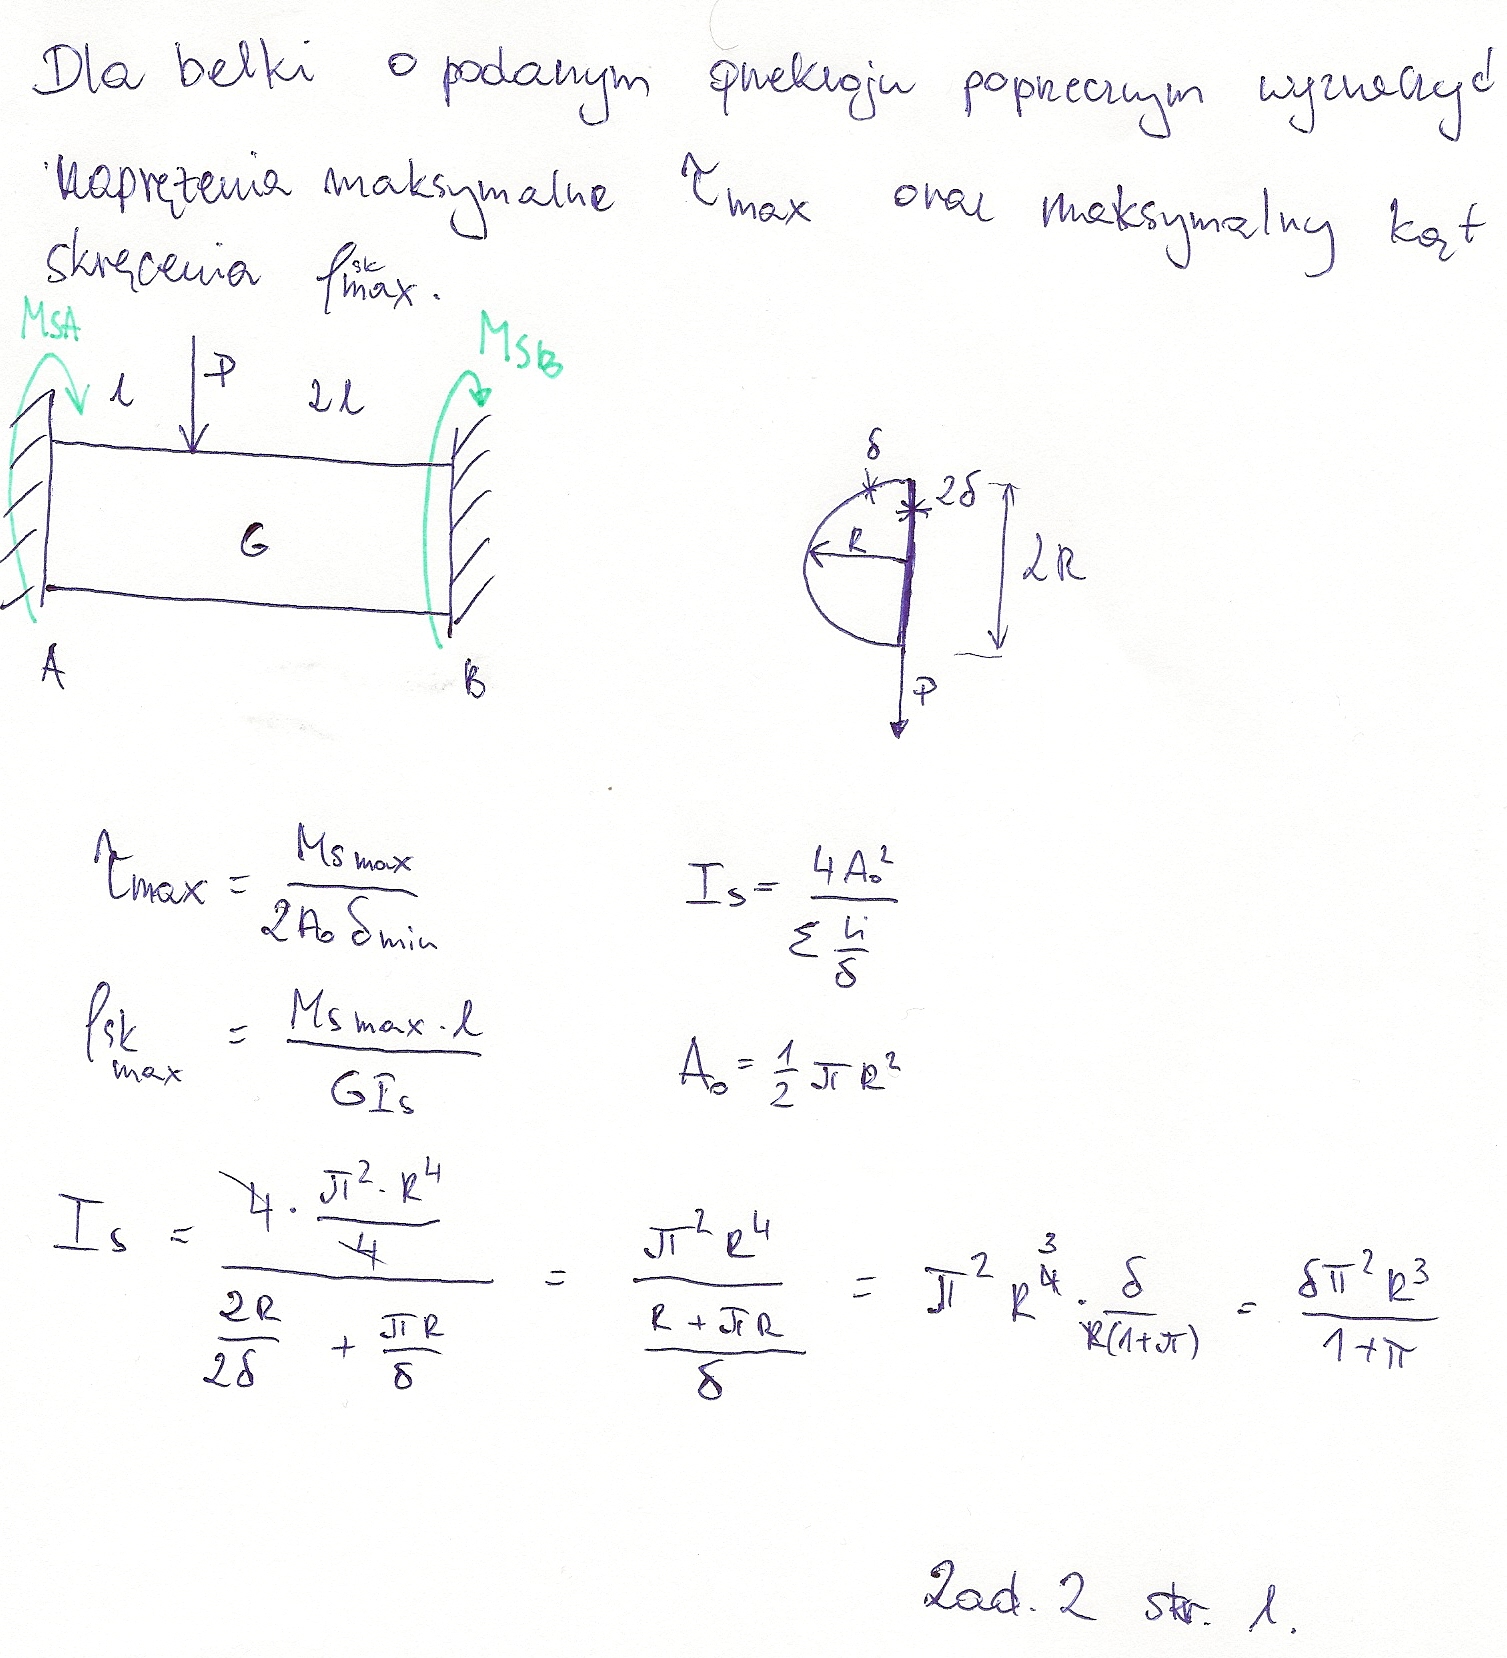 Dla belki o podanym przekroju poprzecznym wyznaczyć
naprężenia maksymalne τmax oraz maksymalny kąt
skręcenia φmax^sk.
MSA
MSB
l
P
2l
G
A
B
δ
2δ
R
2R
P
τmax = Ms max / (2A₀ δmin)
Is = 4A₀² / (Σ Li/δ)
φsk max = Ms max · l / (GIs)
A₀ = 1/2 πR²
Is = (4 · π² · R⁴/4) / (2R/2δ + πR/δ) = π²R⁴ / ((R + πR)/δ) = π² R³ · δ / (R(1+π)) = δπ²R³ / (1+π)
Zad. 2 str. 1.